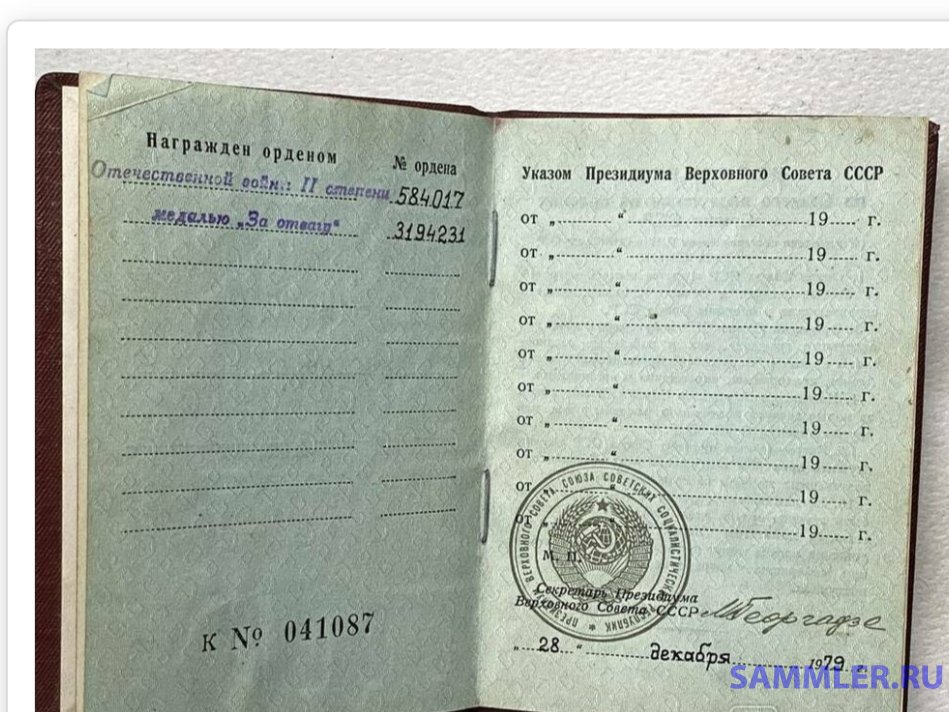 Награжден орденом
№ ордена
Отечественной войны II степени 584017
медалью „За отвагу“ 3194231
К № 041087
Указом Президиума Верховного Совета СССР
от „ “ 19 г.
от „ “ 19 г.
от „ “ 19 г.
от „ “ 19 г.
от „ “ 19 г.
от „ “ 19 г.
от „ “ 19 г.
от „ “ 19 г.
от „ “ 19 г.
от „ “ 19 г.
М. П.
ВЕРХОВНОГО СОВЕТА СОЮЗА СОВЕТСКИХ СОЦИАЛИСТИЧЕСКИХ РЕСПУБЛИК
Секретарь Президиума
Верховного Совета СССР МГеоргадзе
„ 28 “ декабря 1979 г.
SAMMLER.RU